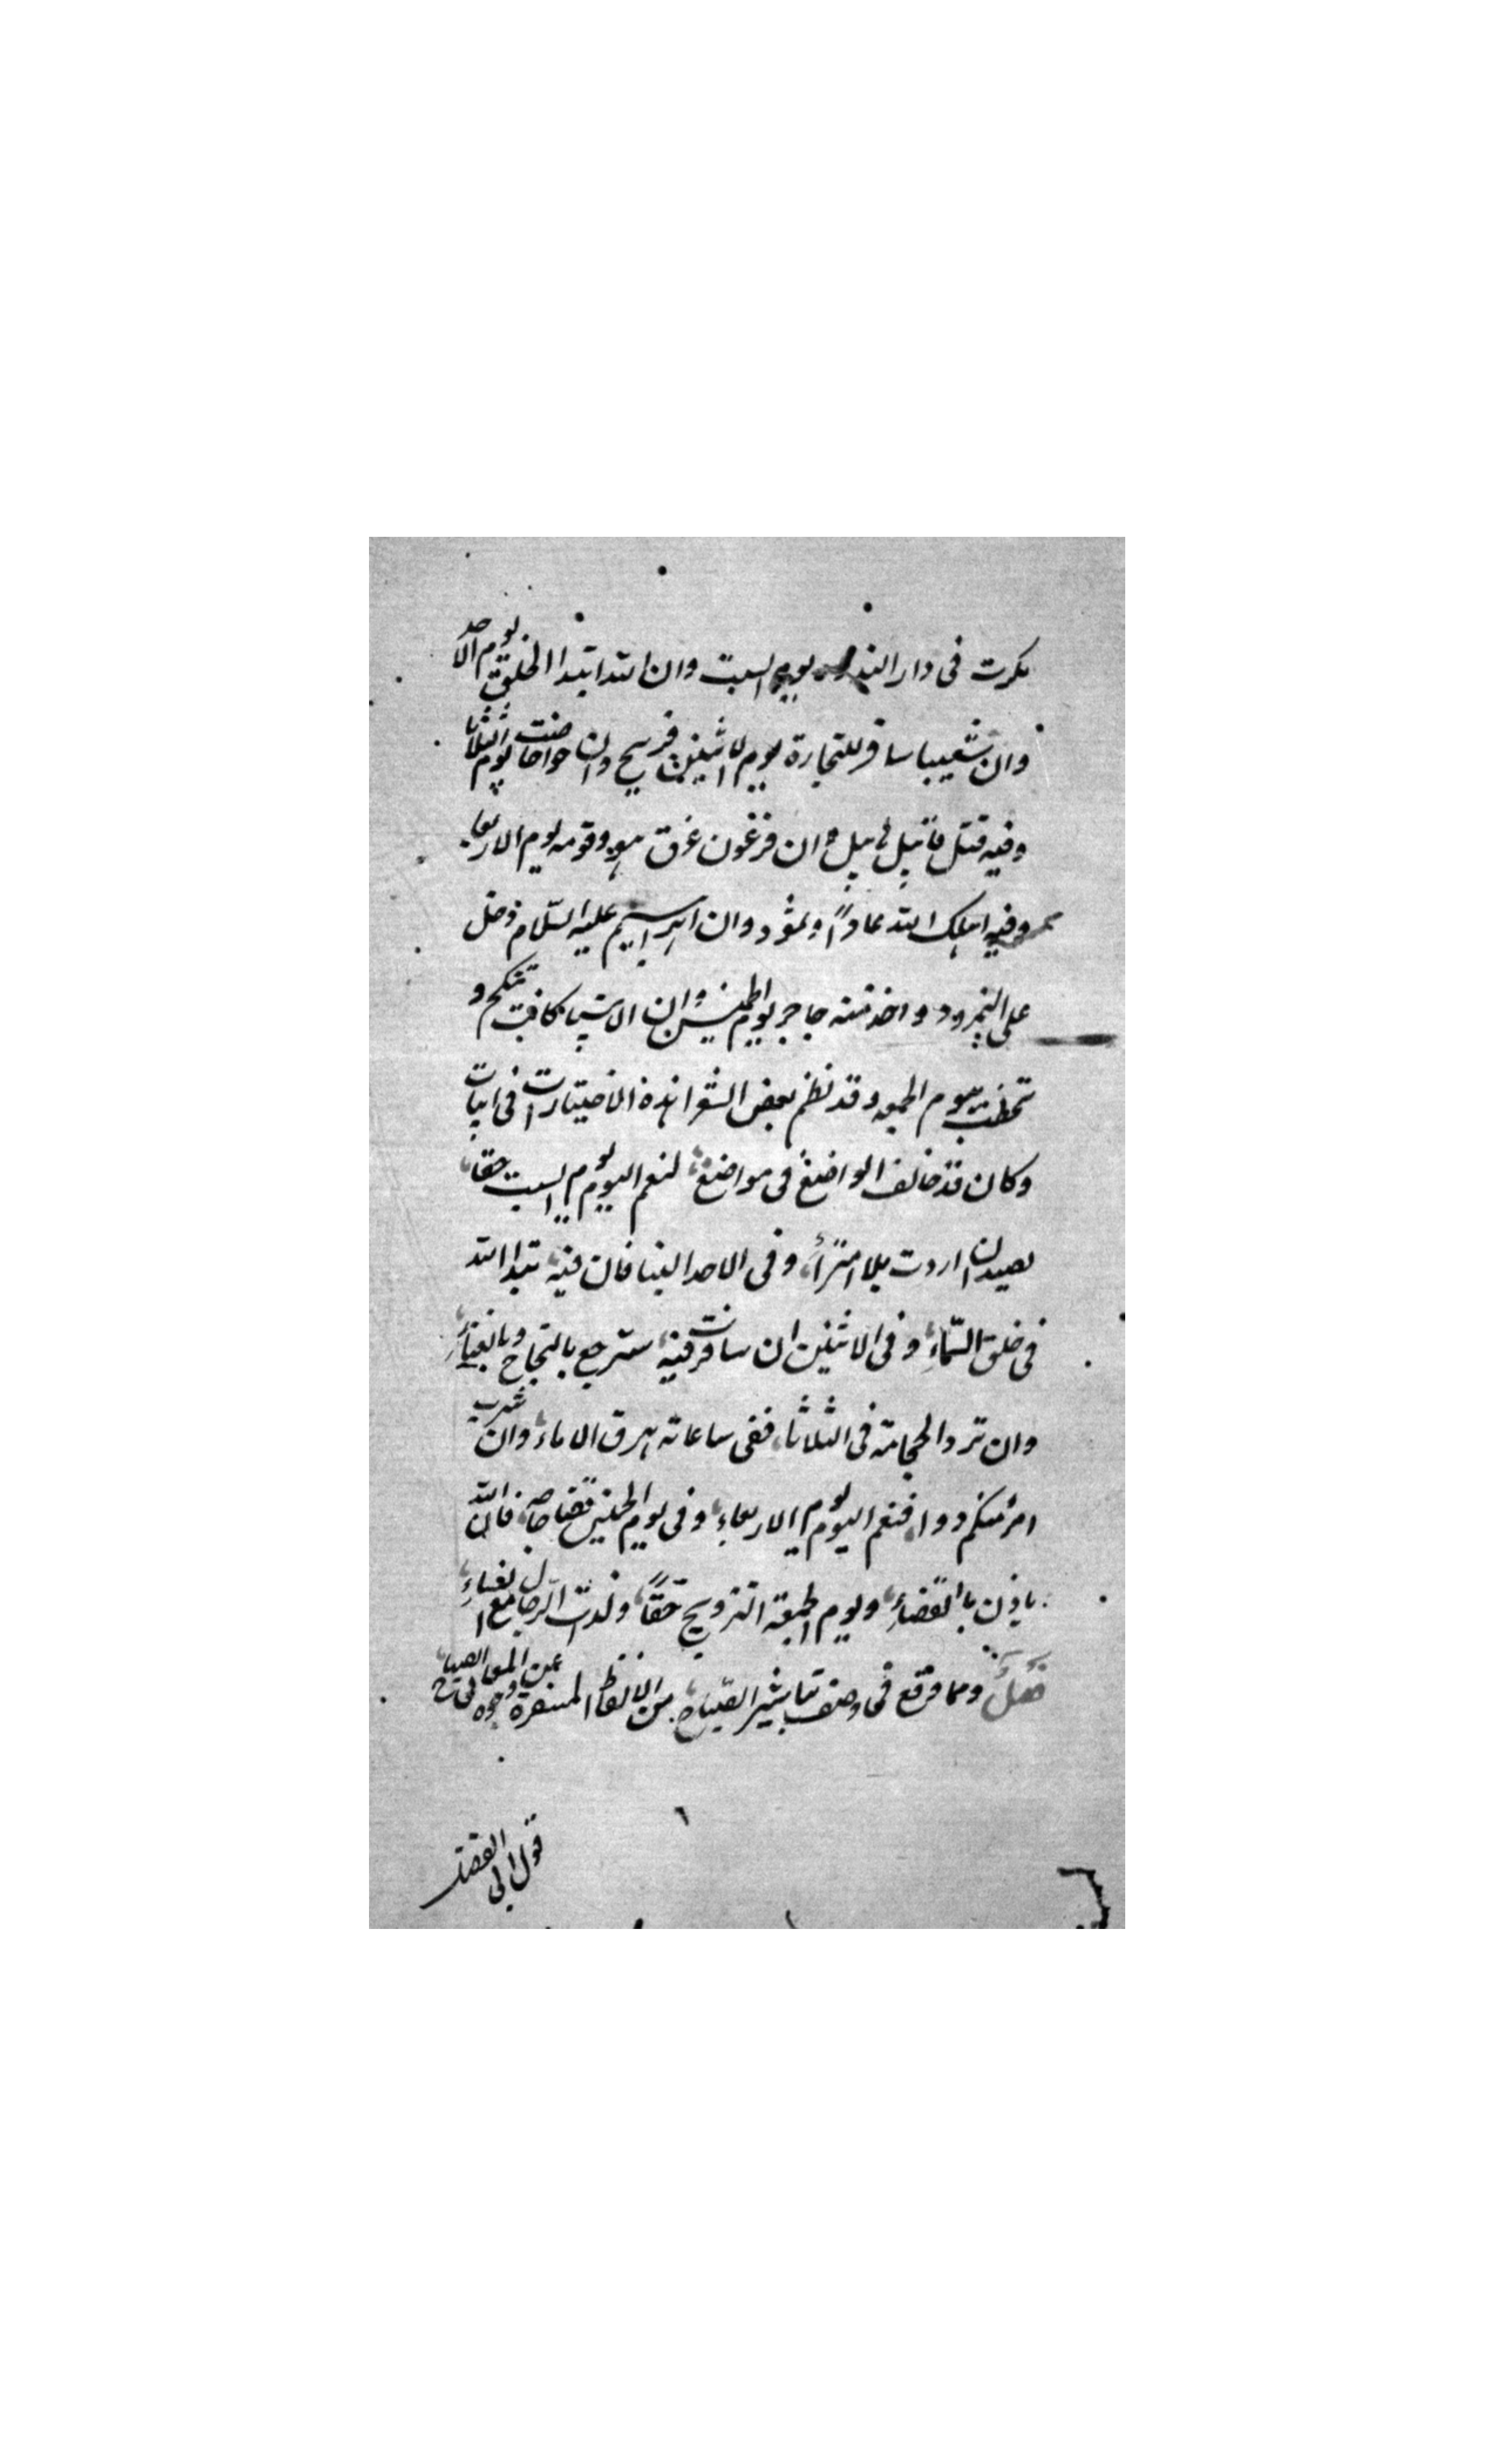 مكرت فى دار الندوه يوم السبت وان الله ابتدا الخلق يوم الاحد
وان شعيبا سافر للتجارة يوم الاثنين فربح وان حوا حاضت يوم الثلاثا
وفيه قتل قابيل هابيل وان فرعون غرق هو وقومه يوم الاربعا
وفيه اهلك الله عادًا وثمود وان ابراهيم عليه السّلام دخل
على النمرود واخذ منه هاجر يوم الخميس وان الانبيا كانت تنكح و
تخطب يوم الجمعه وقد نظم بعض الشعرا هذه الاختيارات فى ابيات
وكان قد خالف الواضع فى مواضع لنعم اليوم يوم السبت حقا
لصيد ان اردت بلا امترأ وفى الاحد البنا فان فيه تبدا الله
فى خلق السّماء وفى الاثنين ان سافرت فيه سترجع بالنجاح وبالغناء
وان ترد الحجامة فى الثلاثا ففى ساعاته هرق الاماء وان شرب
امرء منكم دوا فنعم اليوم يوم الاربعاء وفى يوم الخميس قضا حاجه فان الله
ياذن بالقضاء ويوم الجمعة التزويج حقًا ولذات الرجال مع النساء
فصل ومما وقع فى وصف تباشير الصباح من الالفاظ المسفرة عن وجوه المعانى الصباح
٦
قول ابى الفضل